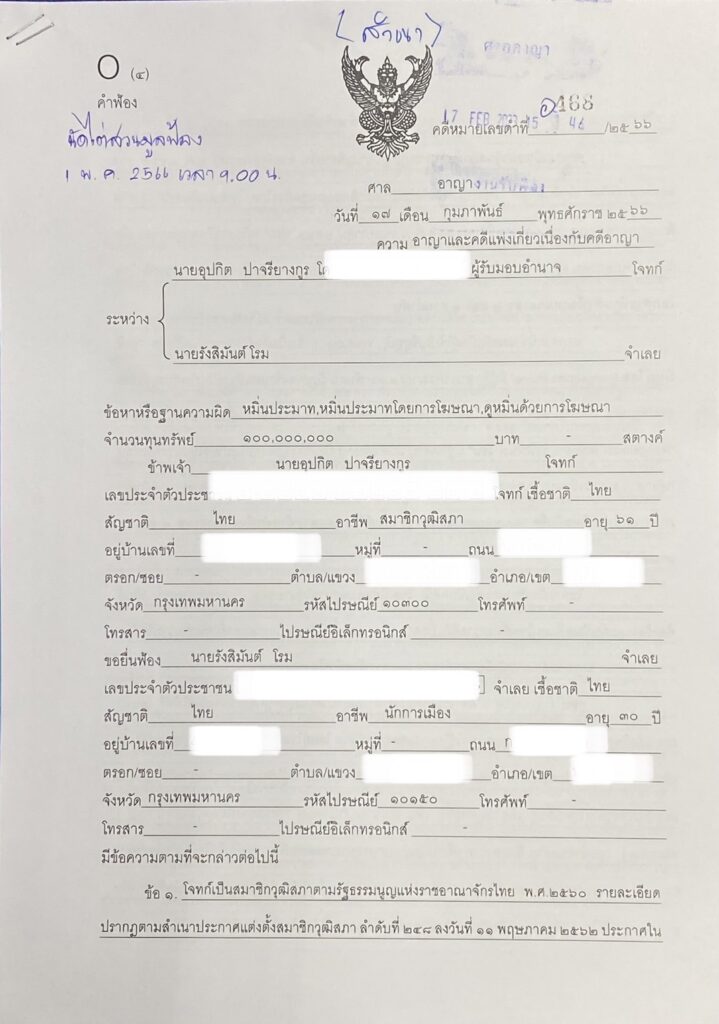 (สำเนา)
ศาลอาญา
๐ (๔)
คำฟ้อง
นัดไต่สวนมูลฟ้อง
1 พ.ค. 2566 เวลา 9.00 น.
17 FEB
คดีหมายเลขดำที่ อ468 /๒๕ ๖๖
ศาล อาญา
งานรับฟ้อง
วันที่ ๑๗ เดือน กุมภาพันธ์ พุทธศักราช ๒๕ ๖๖
ความ อาญาและคดีแพ่งเกี่ยวเนื่องกับคดีอาญา
นายอุปกิต ปาจรียางกูร ผู้รับมอบอำนาจ โจทก์
ระหว่าง
นายรังสิมันต์ โรม จำเลย
ข้อหาหรือฐานความผิด หมิ่นประมาท,หมิ่นประมาทโดยการโฆษณา,ดูหมิ่นด้วยการโฆษณา
จำนวนทุนทรัพย์ ๑๐๐,๐๐๐,๐๐๐ บาท - สตางค์
ข้าพเจ้า นายอุปกิต ปาจรียางกูร โจทก์
เลขประจำตัวประชา โจทก์ เชื้อชาติ ไทย
สัญชาติ ไทย อาชีพ สมาชิกวุฒิสภา อายุ ๖๑ ปี
อยู่บ้านเลขที่ หมู่ที่ - ถนน
ตรอก/ซอย - ตำบล/แขวง อำเภอ/เขต
จังหวัด กรุงเทพมหานคร รหัสไปรษณีย์ ๑๐๓๐๐ โทรศัพท์ -
โทรสาร - ไปรษณีย์อิเล็กทรอนิกส์ -
ขอยื่นฟ้อง นายรังสิมันต์ โรม จำเลย
เลขประจำตัวประชาชน จำเลย เชื้อชาติ ไทย
สัญชาติ ไทย อาชีพ นักการเมือง อายุ ๓๐ ปี
อยู่บ้านเลขที่ หมู่ที่ - ถนน
ตรอก/ซอย - ตำบล/แขวง อำเภอ/เขต
จังหวัด กรุงเทพมหานคร รหัสไปรษณีย์ ๑๐๑๕๐ โทรศัพท์ -
โทรสาร - ไปรษณีย์อิเล็กทรอนิกส์ -
มีข้อความตามที่จะกล่าวต่อไปนี้
ข้อ ๑. โจทก์เป็นสมาชิกวุฒิสภาตามรัฐธรรมนูญแห่งราชอาณาจักรไทย พ.ศ.๒๕๖๐ รายละเอียด
ปรากฏตามสำเนาประกาศแต่งตั้งสมาชิกวุฒิสภา ลำดับที่ ๒๔๘ ลงวันที่ ๑๑ พฤษภาคม ๒๕๖๒ ประกาศใน